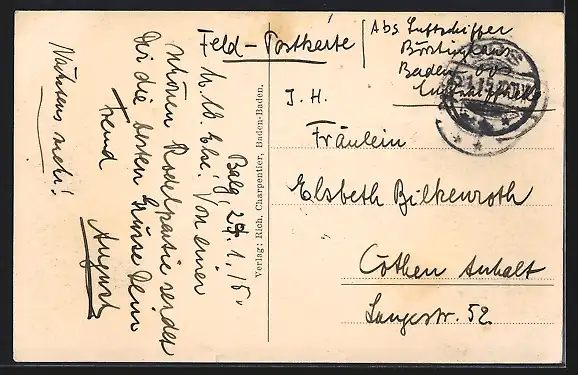 Feld-Postkarte
Abs. Luftschiffer
Börtinghaus
Baden-Oos
Luftschiffh.
I. H.
Fräulein
Elsbeth Bilkenroth
Cöthen Anhalt
Langestr. 52.
Verlag: Rich. Charpentier, Baden-Baden.
Balg, 29. 1. 15
M. lb. Else! Von einer
schönen Rodelpartie sendet
Dir die besten Grüsse Dein
Freund
August
Nächstens mehr!